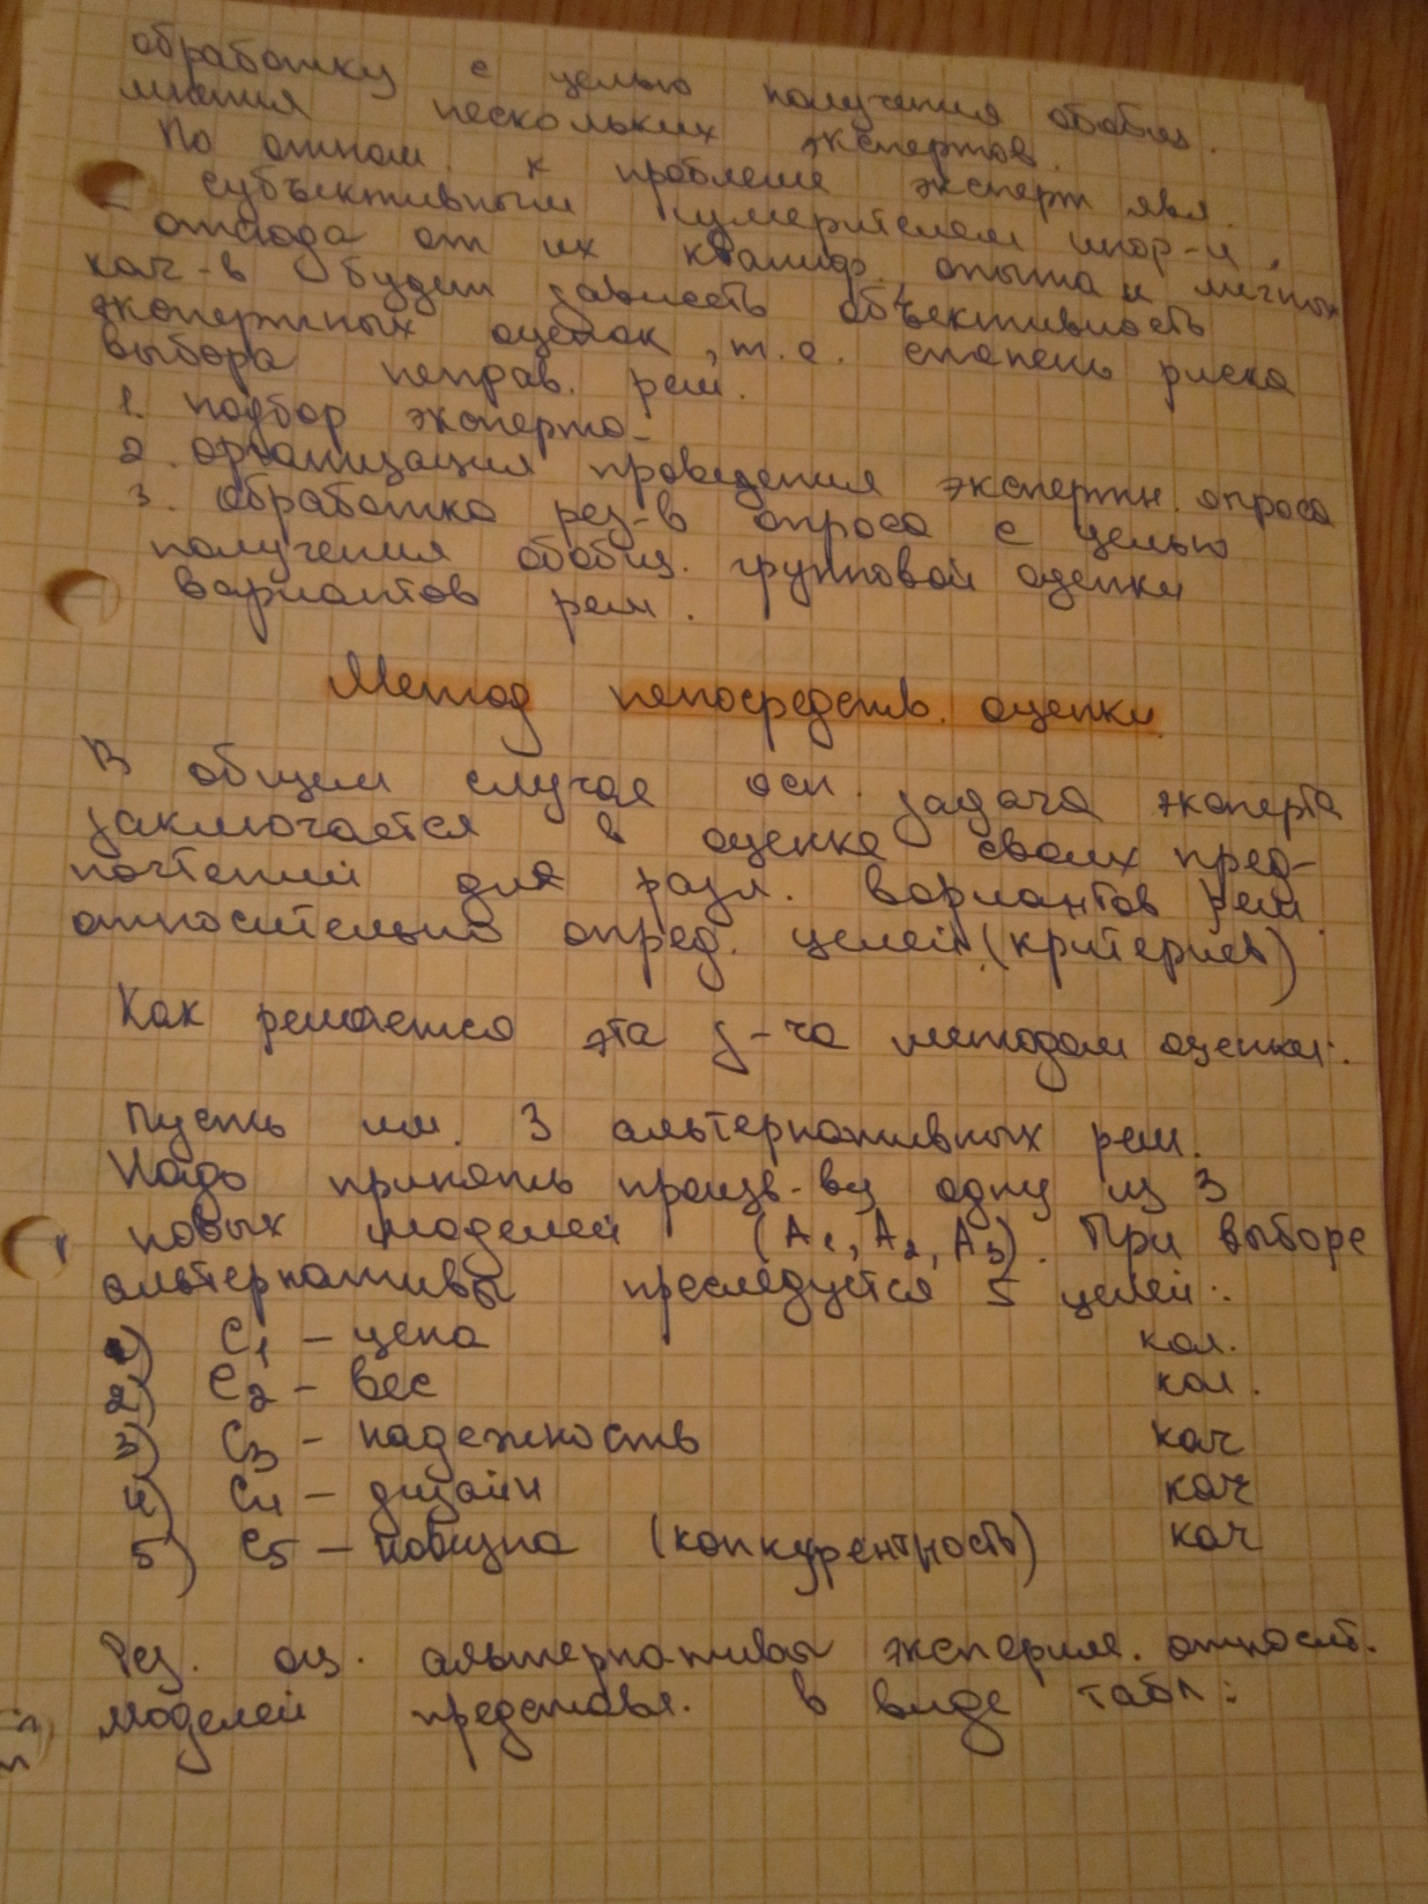 обработку с целью получения обобщ.
мнения нескольких экспертов.
По отнош. к проблеме эксперт явл.
субъективным измерителем инф-и,
отсюда от их квалиф., опыта и личных
кач-в будет зависеть объективность
экспертных оценок, т.е. степень риска
выбора неправ. реш.
1. подбор эксперто-
2. организация проведения экспертн. опроса
3. обработка рез-в опроса с целью
получения обобщ. групповой оценки
вариантов реш.
Метод непосредств. оценки.
В общем случае осн. задача эксперта
заключается в оценке своих пред-
почтений для разл. вариантов реш.
относительно опред. целей (критериев)
Как решается эта з-ча методом оценки:
Пусть им. 3 альтернативных реш.
Надо принять произв-ву одну из 3
новых моделей (А1, А2, А3). При выборе
альтернативы преследуется 5 целей:
1) С1 – цена кол.
2) С2 – вес кол.
3) С3 – надежность кач
4) С4 – дизайн кач
5) С5 – новизна (конкурентность) кач
Рез. оц. альтернативы относит.
моделей представл. в виде табл: